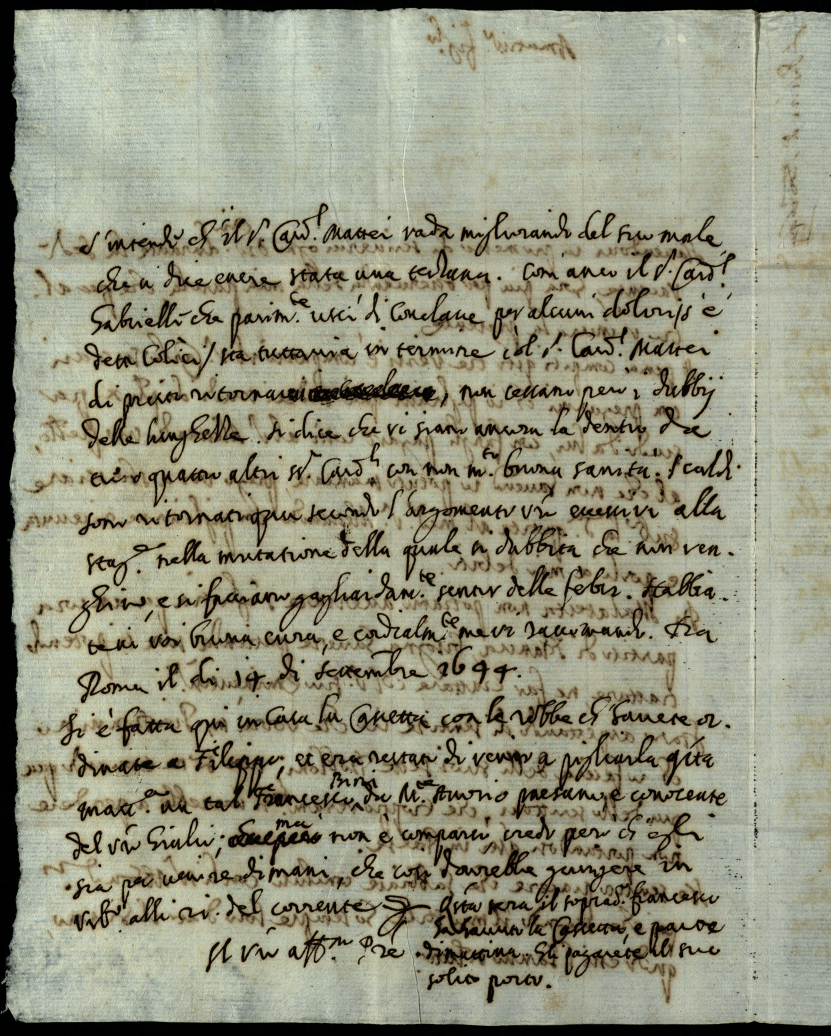 S'intende ch' il S.r Card.l Mattei vada migliorando del suo male
che si dice essere stata una terzana. Com'anco il S.r Card.l
Gabrielli che parim.te uscì di Conclave per alcuni dolori/s'è
detto Colici/ sta tuttavia in termine col S.r Card.l Mattei
di presto ritornare, non cessano però i dubbij
delle lunghezze. Si dice che vi siano ancora là dentro da
tre o quattro altri SS.ri Card.li con non m.to buona sanità. I caldi
sono ritornati qui secondo l'argomento v.ro eccessivi alla
stag.e nella mutatione della quale si dubbita che non ven-
ghino, e si facciano gagliardam.te sentir delle febri. Habbia-
tevi voi buona cura, e cordialm.te me vi raccomando. Da
Roma il di 14. di settembre 1644.
Si è fatta qui in Casa la Cassetta con le robbe ch' havete or-
dinate a Filippo; et era restato di venir a pigliarla q.sta
matt.a un tal Francesco Bini da M.te Auorio paesano, e conoscente
del v.ro Giulio; ma non è comparso credo però ch' egli
sia per venire dimani, che così dovrebbe giungere in
Urb.o alli 21. del corrente q.sta sera il soprad.o francesco
ha havuto la Cassetta, e parte
Il v.ro aff.mo P.re dimattina. Gli pagarete il suo
solito porto.